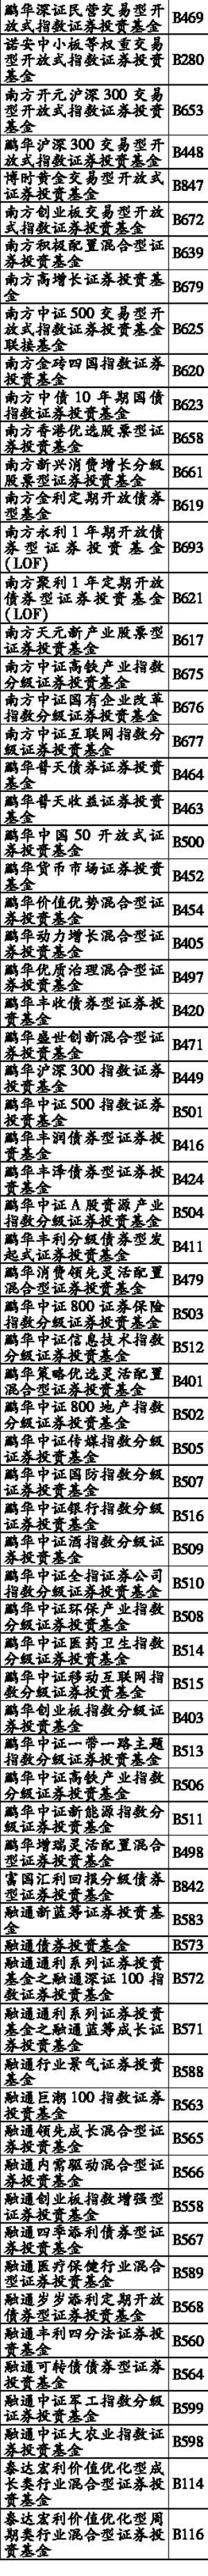 鹏华深证民营交易型开
放式指数证券投资基金 B469
诺安中小板等权重交易
型开放式指数证券投资
基金 B280
南方开元沪深 300 交易
型开放式指数证券投资
基金 B653
鹏华沪深 300 交易型开
放式指数证券投资基金 B448
博时黄金交易型开放式
证券投资基金 B847
南方创业板交易型开放
式指数证券投资基金 B672
南方积极配置混合型证
券投资基金 B639
南方高增长证券投资基
金 B679
南方中证 500 交易型开
放式指数证券投资基金
联接基金 B625
南方金砖四国指数证券
投资基金 B620
南方中债 10 年期国债
指数证券投资基金 B623
南方香港优选股票型证
券投资基金 B658
南方新兴消费增长分级
股票型证券投资基金 B661
南方金利定期开放债券
型基金 B619
南方永利 1 年期开放债
券型证券投资基金
(LOF) B693
南方聚利 1 年定期开放
债券型证券投资基金
(LOF) B621
南方天元新产业股票型
证券投资基金 B617
南方中证高铁产业指数
分级证券投资基金 B675
南方中证国有企业改革
指数分级证券投资基金 B676
南方中证互联网指数分
级证券投资基金 B677
鹏华普天债券证券投资
基金 B464
鹏华普天收益证券投资
基金 B463
鹏华中国 50 开放式证
券投资基金 B500
鹏华货币市场证券投资
基金 B452
鹏华价值优势混合型证
券投资基金 B454
鹏华动力增长混合型证
券投资基金 B405
鹏华优质治理混合型证
券投资基金 B497
鹏华丰收债券型证券投
资基金 B420
鹏华盛世创新混合型证
券投资基金 B471
鹏华沪深 300 指数证券
投资基金 B449
鹏华中证 500 指数证券
投资基金 B501
鹏华丰润债券型证券投
资基金 B416
鹏华丰泽债券型证券投
资基金 B424
鹏华中证 A 股资源产业
指数分级证券投资基金 B504
鹏华丰利分级债券型发
起式证券投资基金 B411
鹏华消费领先灵活配置
混合型证券投资基金 B479
鹏华中证 800 证券保险
指数分级证券投资基金 B503
鹏华中证信息技术指数
分级证券投资基金 B512
鹏华策略优选灵活配置
混合型证券投资基金 B401
鹏华中证 800 地产指数
分级证券投资基金 B502
鹏华中证传媒指数分级
证券投资基金 B505
鹏华中证国防指数分级
证券投资基金 B507
鹏华中证银行指数分级
证券投资基金 B516
鹏华中证酒指数分级证
券投资基金 B509
鹏华中证全指证券公司
指数分级证券投资基金 B510
鹏华中证环保产业指数
分级证券投资基金 B508
鹏华中证医药卫生指数
分级证券投资基金 B514
鹏华中证移动互联网指
数分级证券投资基金 B515
鹏华创业板指数分级证
券投资基金 B403
鹏华中证一带一路主题
指数分级证券投资基金 B513
鹏华中证高铁产业指数
分级证券投资基金 B506
鹏华中证新能源指数分
级证券投资基金 B511
鹏华增瑞灵活配置混合
型证券投资基金 B498
富国汇利回报分级债券
型证券投资基金 B842
融通新蓝筹证券投资基
金 B583
融通债券投资基金 B573
融通通利系列证券投资
基金之融通深证 100 指
数证券投资基金 B572
融通通利系列证券投资
基金之融通蓝筹成长证
券投资基金 B571
融通行业景气证券投资
基金 B588
融通巨潮 100 指数证券
投资基金 B563
融通领先成长混合型证
券投资基金 B565
融通内需驱动混合型证
券投资基金 B566
融通创业板指数增强型
证券投资基金 B558
融通四季添利债券型证
券投资基金 B567
融通医疗保健行业混合
型证券投资基金 B589
融通岁岁添利定期开放
债券型证券投资基金 B568
融通丰利四分法证券投
资基金 B560
融通可转债债券型证券
投资基金 B564
融通中证军工指数分级
证券投资基金 B599
融通中证大农业指数证
券投资基金 B598
泰达宏利价值优化型成
长类行业混合型证券投
资基金 B114
泰达宏利价值优化型周
期类行业混合型证券投
资基金 B116